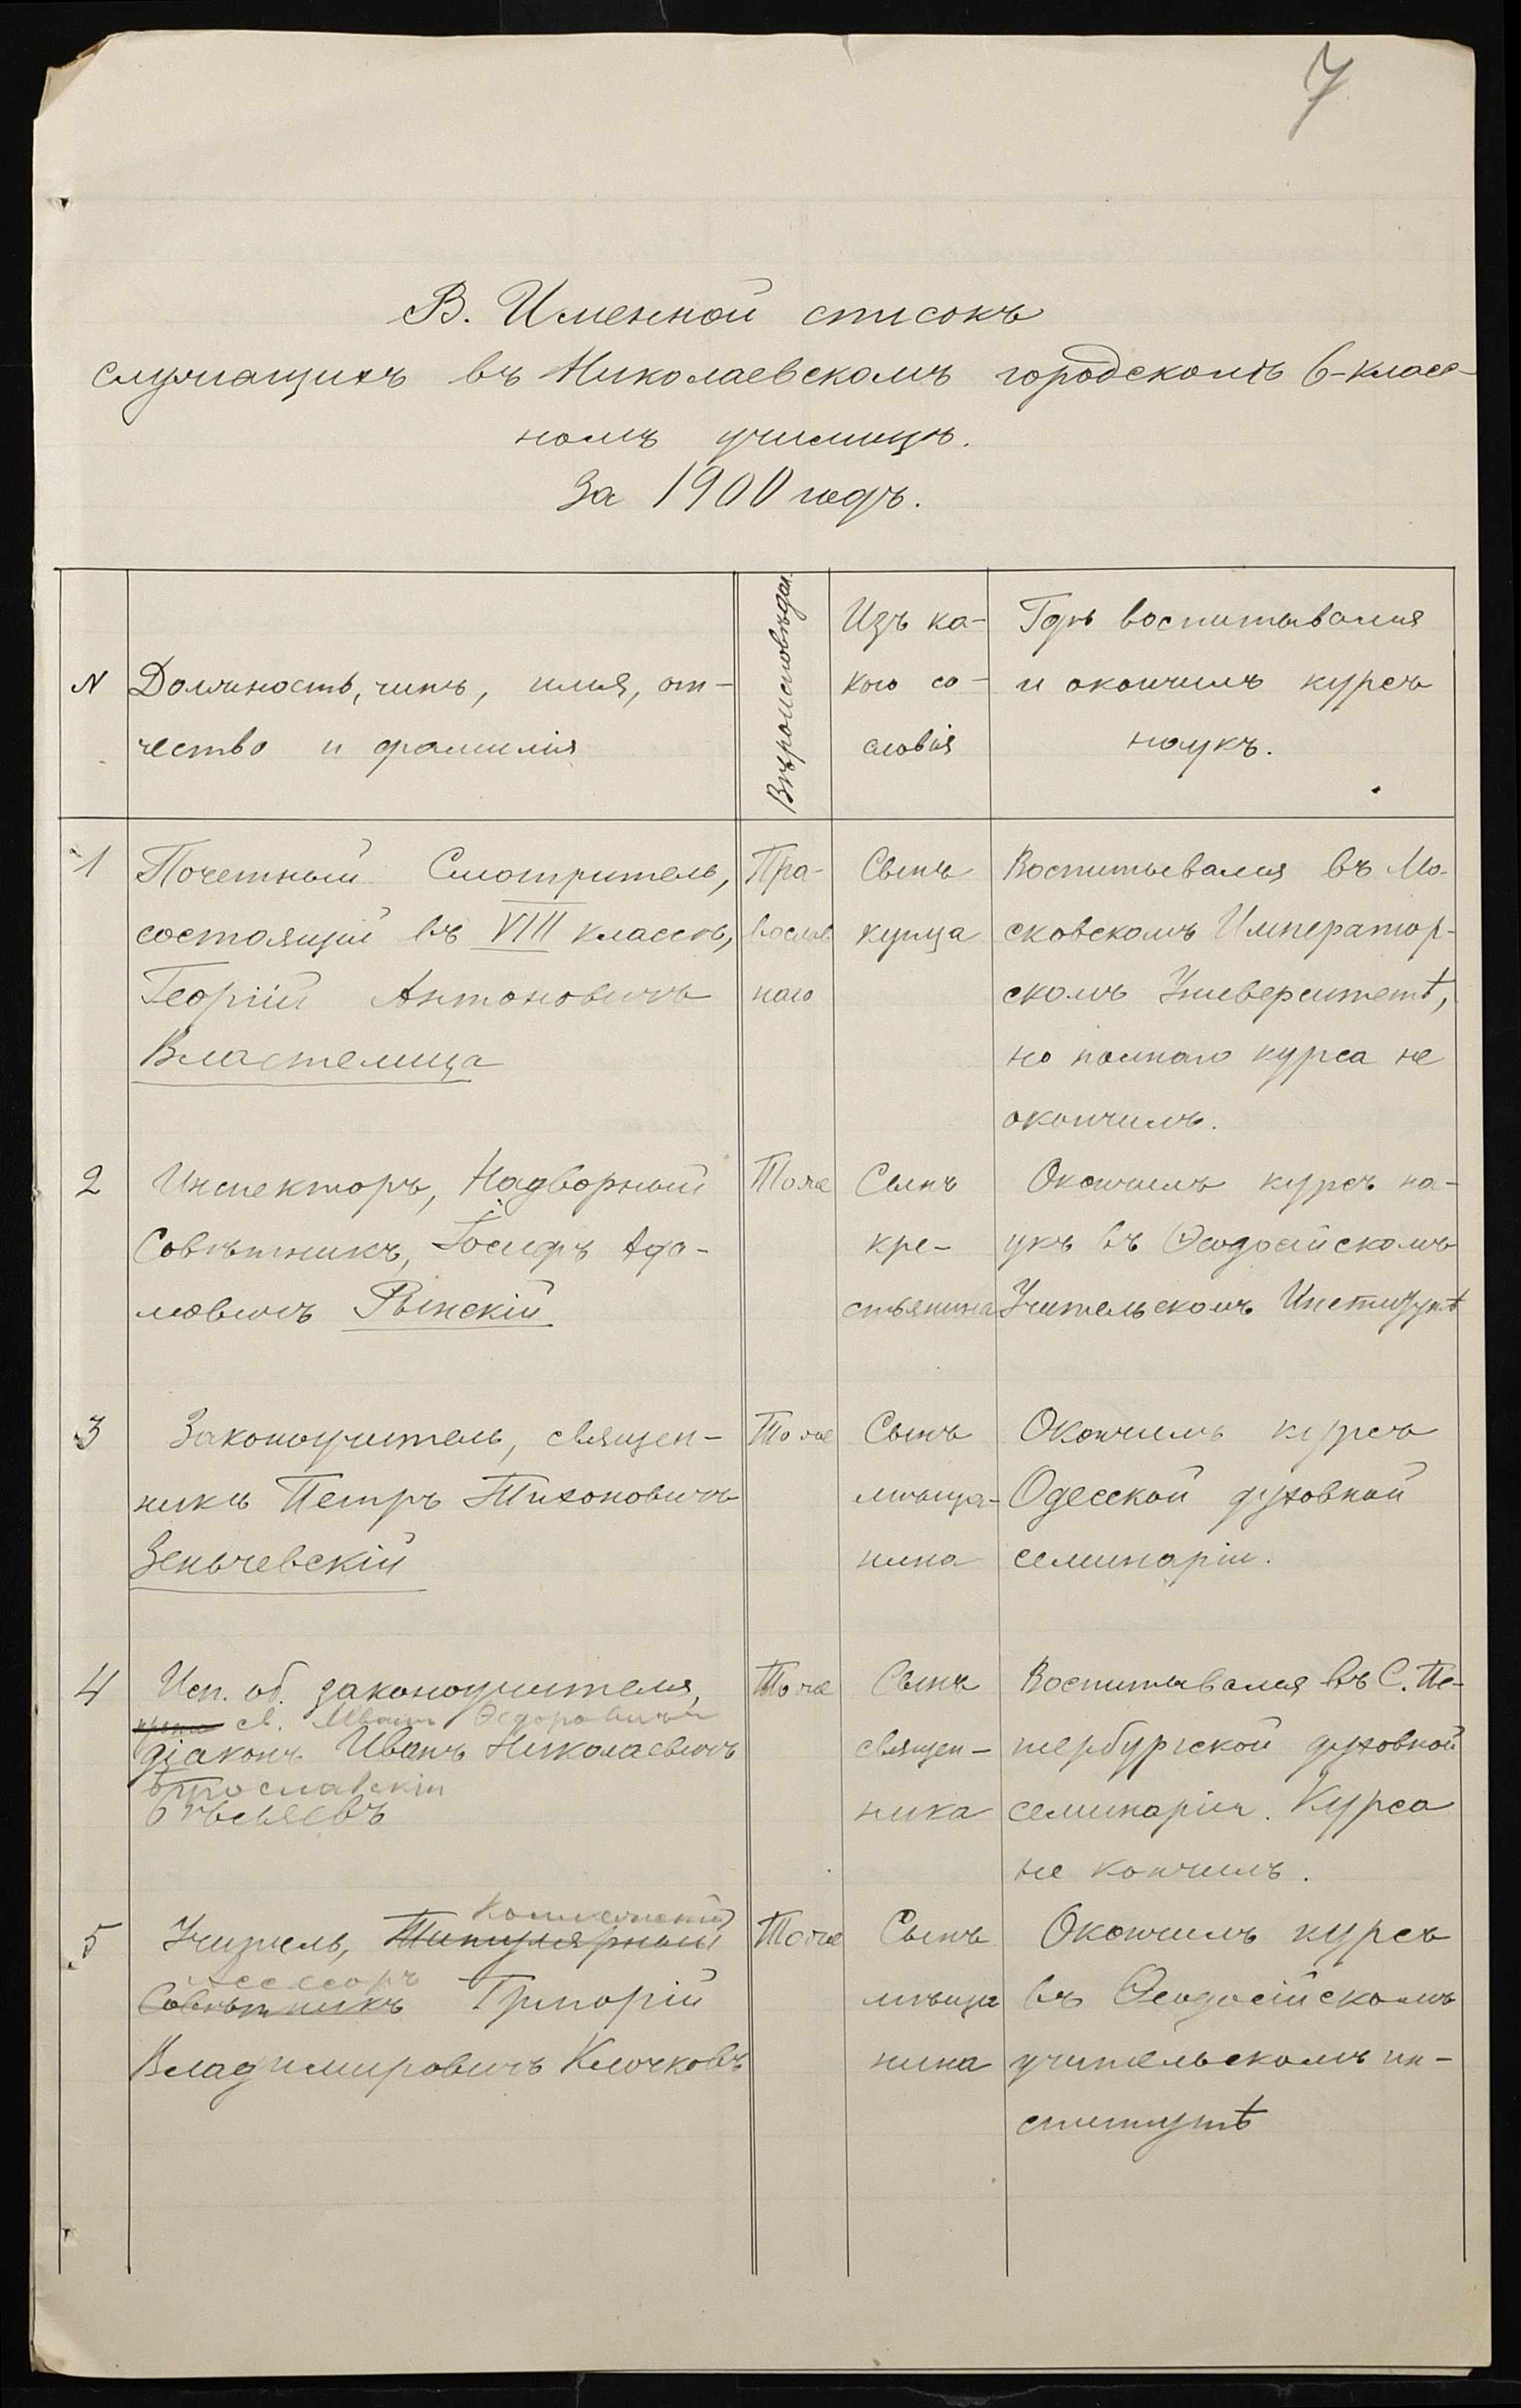 7
В. Именной списокъ
служащихъ въ Николаевскомъ городскомъ 6-класс-
номъ училищѣ.
За 1900 годъ.
N
Должность, чинъ, имя, от-
чество и фамилія
Вѣроисповѣдан.
Изъ ка-
кого со-
словія
Гдѣ воспитывался
и окончилъ курсъ
наукъ.
1
Почетный Смотритель,
состоящій въ VIII классѣ,
Георгій Антоновичъ
Властелица
Пра-
вослав
наго
Сынъ
купца
Воспитывался въ Мо-
сковскомъ Император-
скомъ Университетѣ,
но полнаго курса не
окончилъ.
2
Инспекторъ, Надворный
Совѣтникъ, Іосифъ Ада-
мовичъ Рынскій
Тоже
Сынъ
кре-
стьянина
Окончилъ курсъ на-
укъ въ Ѳеодосійскомъ
Учительскомъ Институтѣ
3
Законоучитель, священ-
никъ Петръ Тихоновичъ
Зеньчевскій
Тоже
Сынъ
мѣща-
нина
Окончилъ курсъ
Одесской духовной
семинаріи.
4
Исп. об. законоучителя,
св. Иванъ Ѳедоровичъ
діаконъ Иванъ Николаевичъ
Бѣляевъ
Тоже
Сынъ
священ-
ника
Воспитывался въ С. Пе-
тербургской духовной
семинаріи. Курса
не кончилъ.
5
Коллежскій
Учитель, Титулярный
Ассессоръ
Совѣтникъ Григорій
Владимировичъ Клочковъ
Тоже
Сынъ
мѣща
нина
Окончилъ курсъ
въ Ѳеодосійскомъ
учительскомъ ин-
ститутѣ